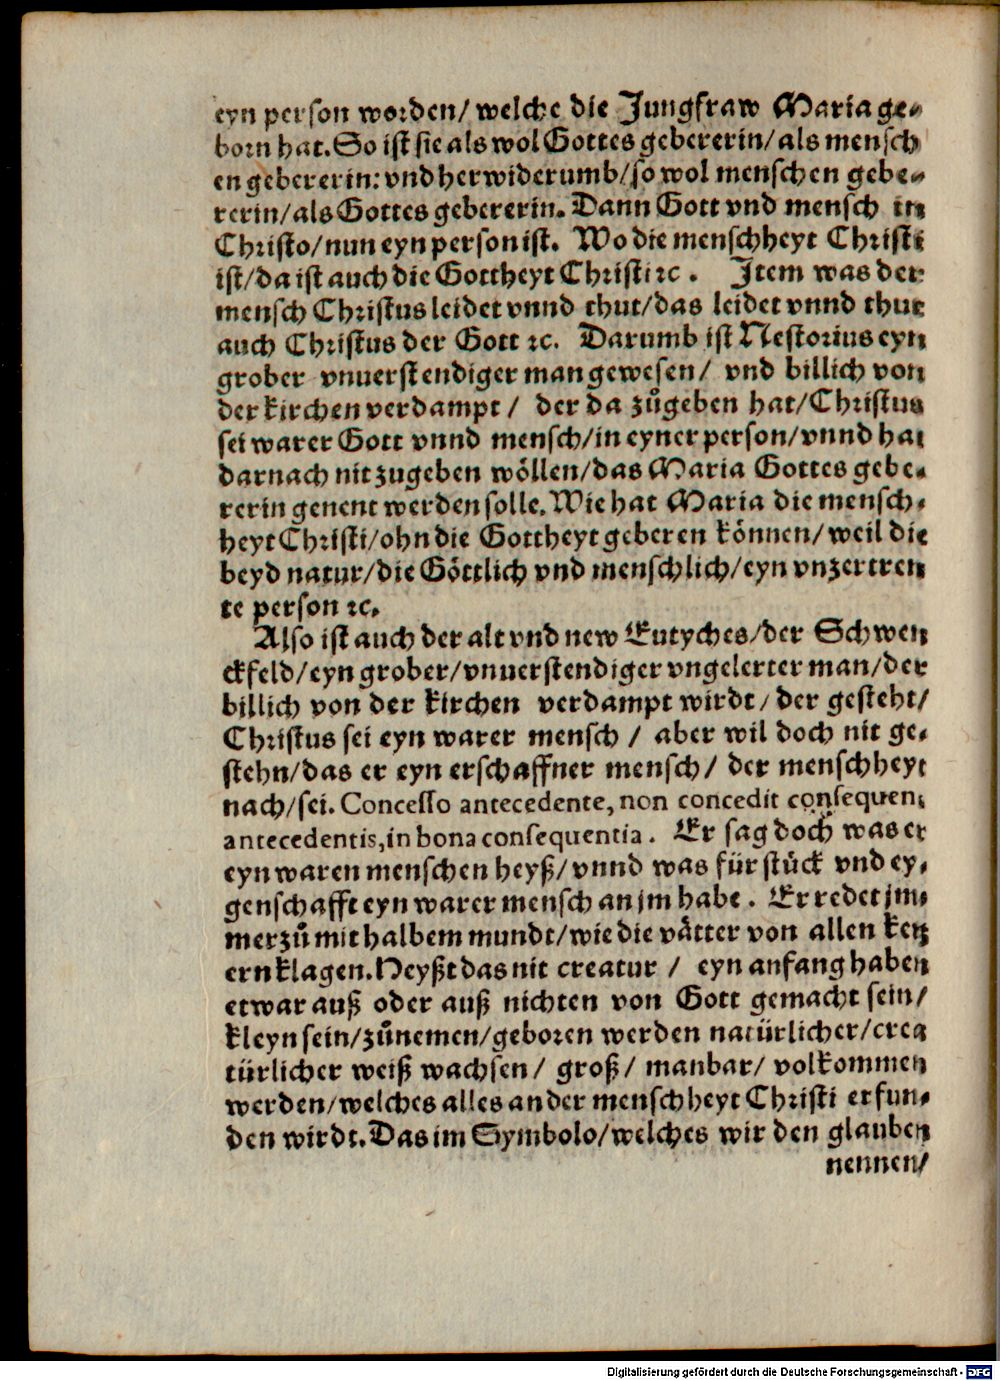 eyn person worden/ welche die Jungfraw Maria ge-
born hat. So ist sie als wol Gottes gebererin/ als mensch
en gebererin: vnd herwiderumb/ so wol menschen gebe-
rerin/ als Gottes gebererin. Dann Gott vnd mensch in
Christo/ nun eyn person ist. Wo die menschheyt Christi
ist/ da ist auch die Gottheyt Christi ꝛc. Item was der
mensch Christus leidet vnnd thut/ das leidet vnnd thut
auch Christus der Gott ꝛc. Darumb ist Nestorius eyn
grober vnuerstendiger man gewesen/ vnd billich von
der kirchen verdampt/ der da zůgeben hat/ Christus
sei warer Gott vnnd mensch/ in eyner person/ vnnd hat
darnach nit zugeben wöllen/ das Maria Gottes gebe-
rerin genent werden solle. Wie hat Maria die mensch-
heyt Christi/ ohn die Gottheyt geberen können/ weil die
beyd natur/ die Göttlich vnd menschlich/ eyn vnzertren
te person ꝛc.
Also ist auch der alt vnd new Eutyches/ der Schwen
ckfeld/ eyn grober/ vnuerstendiger vngelerter man/ der
billich von der kirchen verdampt wirdt/ der gesteht/
Christus sei eyn warer mensch/ aber wil doch nit ge-
stehn/ das er eyn erschaffner mensch/ der menschheyt
nach/ sei. Concesso antecedente, non concedit consequens
antecedentis, in bona consequentia. Er sag doch was er
eyn waren menschen heyß/ vnnd was für stück vnd ey-
genschafft eyn warer mensch an jm habe. Er redet jm-
merzů mit halbem mundt/ wie die vätter von allen ketz
ern klagen. Heyßt das nit creatur/ eyn anfang haben
etwar auß oder auß nichten von Gott gemacht sein/
kleyn sein/ zůnemen/ geboren werden natürlicher/ crea
türlicher weiß wachsen/ groß/ manbar/ volkommen
werden/ welches alles an der menschheyt Christi erfun-
den wirdt. Das im Symbolo/ welches wir den glauben
nennen/
Digitalisierung gefördert durch die Deutsche Forschungsgemeinschaft - DFG